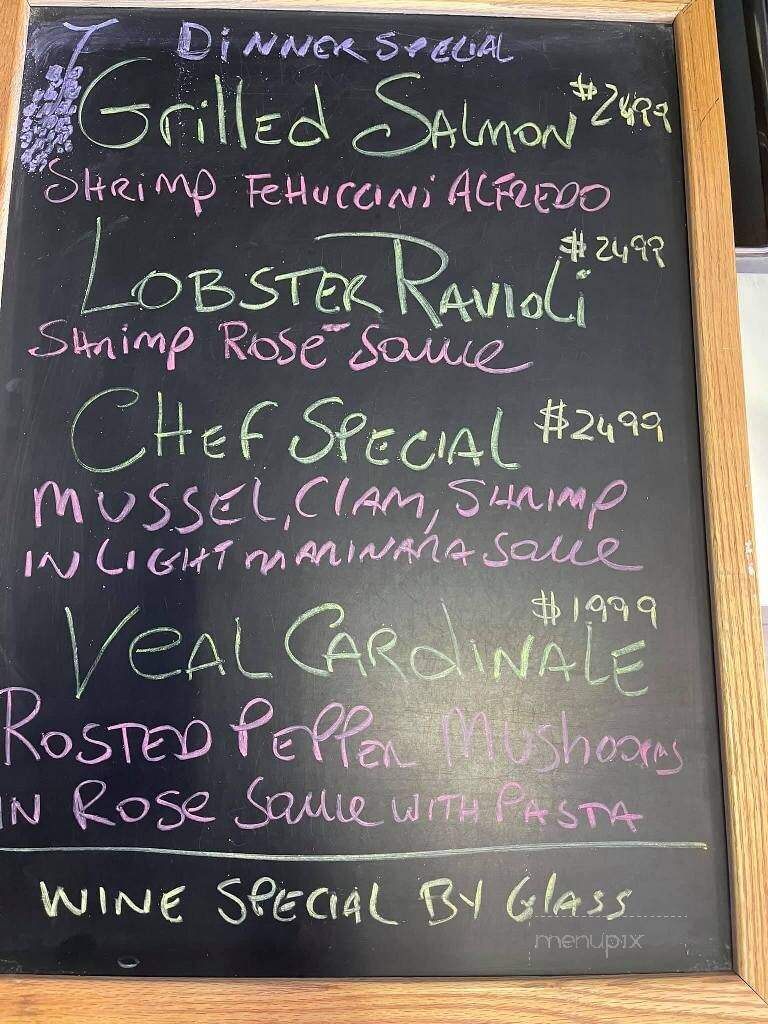 DINNER SPECIAL
Grilled SALMON $2499
SHRIMP FeHUCCINi ALFREDO
$2499
LOBSTER RAViOLi
Shrimp Rosé Sauce
CHeF SPECIAL $2499
MUSSEL, ClAM, SHRIMP
IN LIGHT MARINARA Sauce
$1999
VeAL CARDINALE
ROSTED PePPeR MUShooms
IN ROSe Sauce WITH PASTA
WINE SPECIAL BY GlASS
menupix